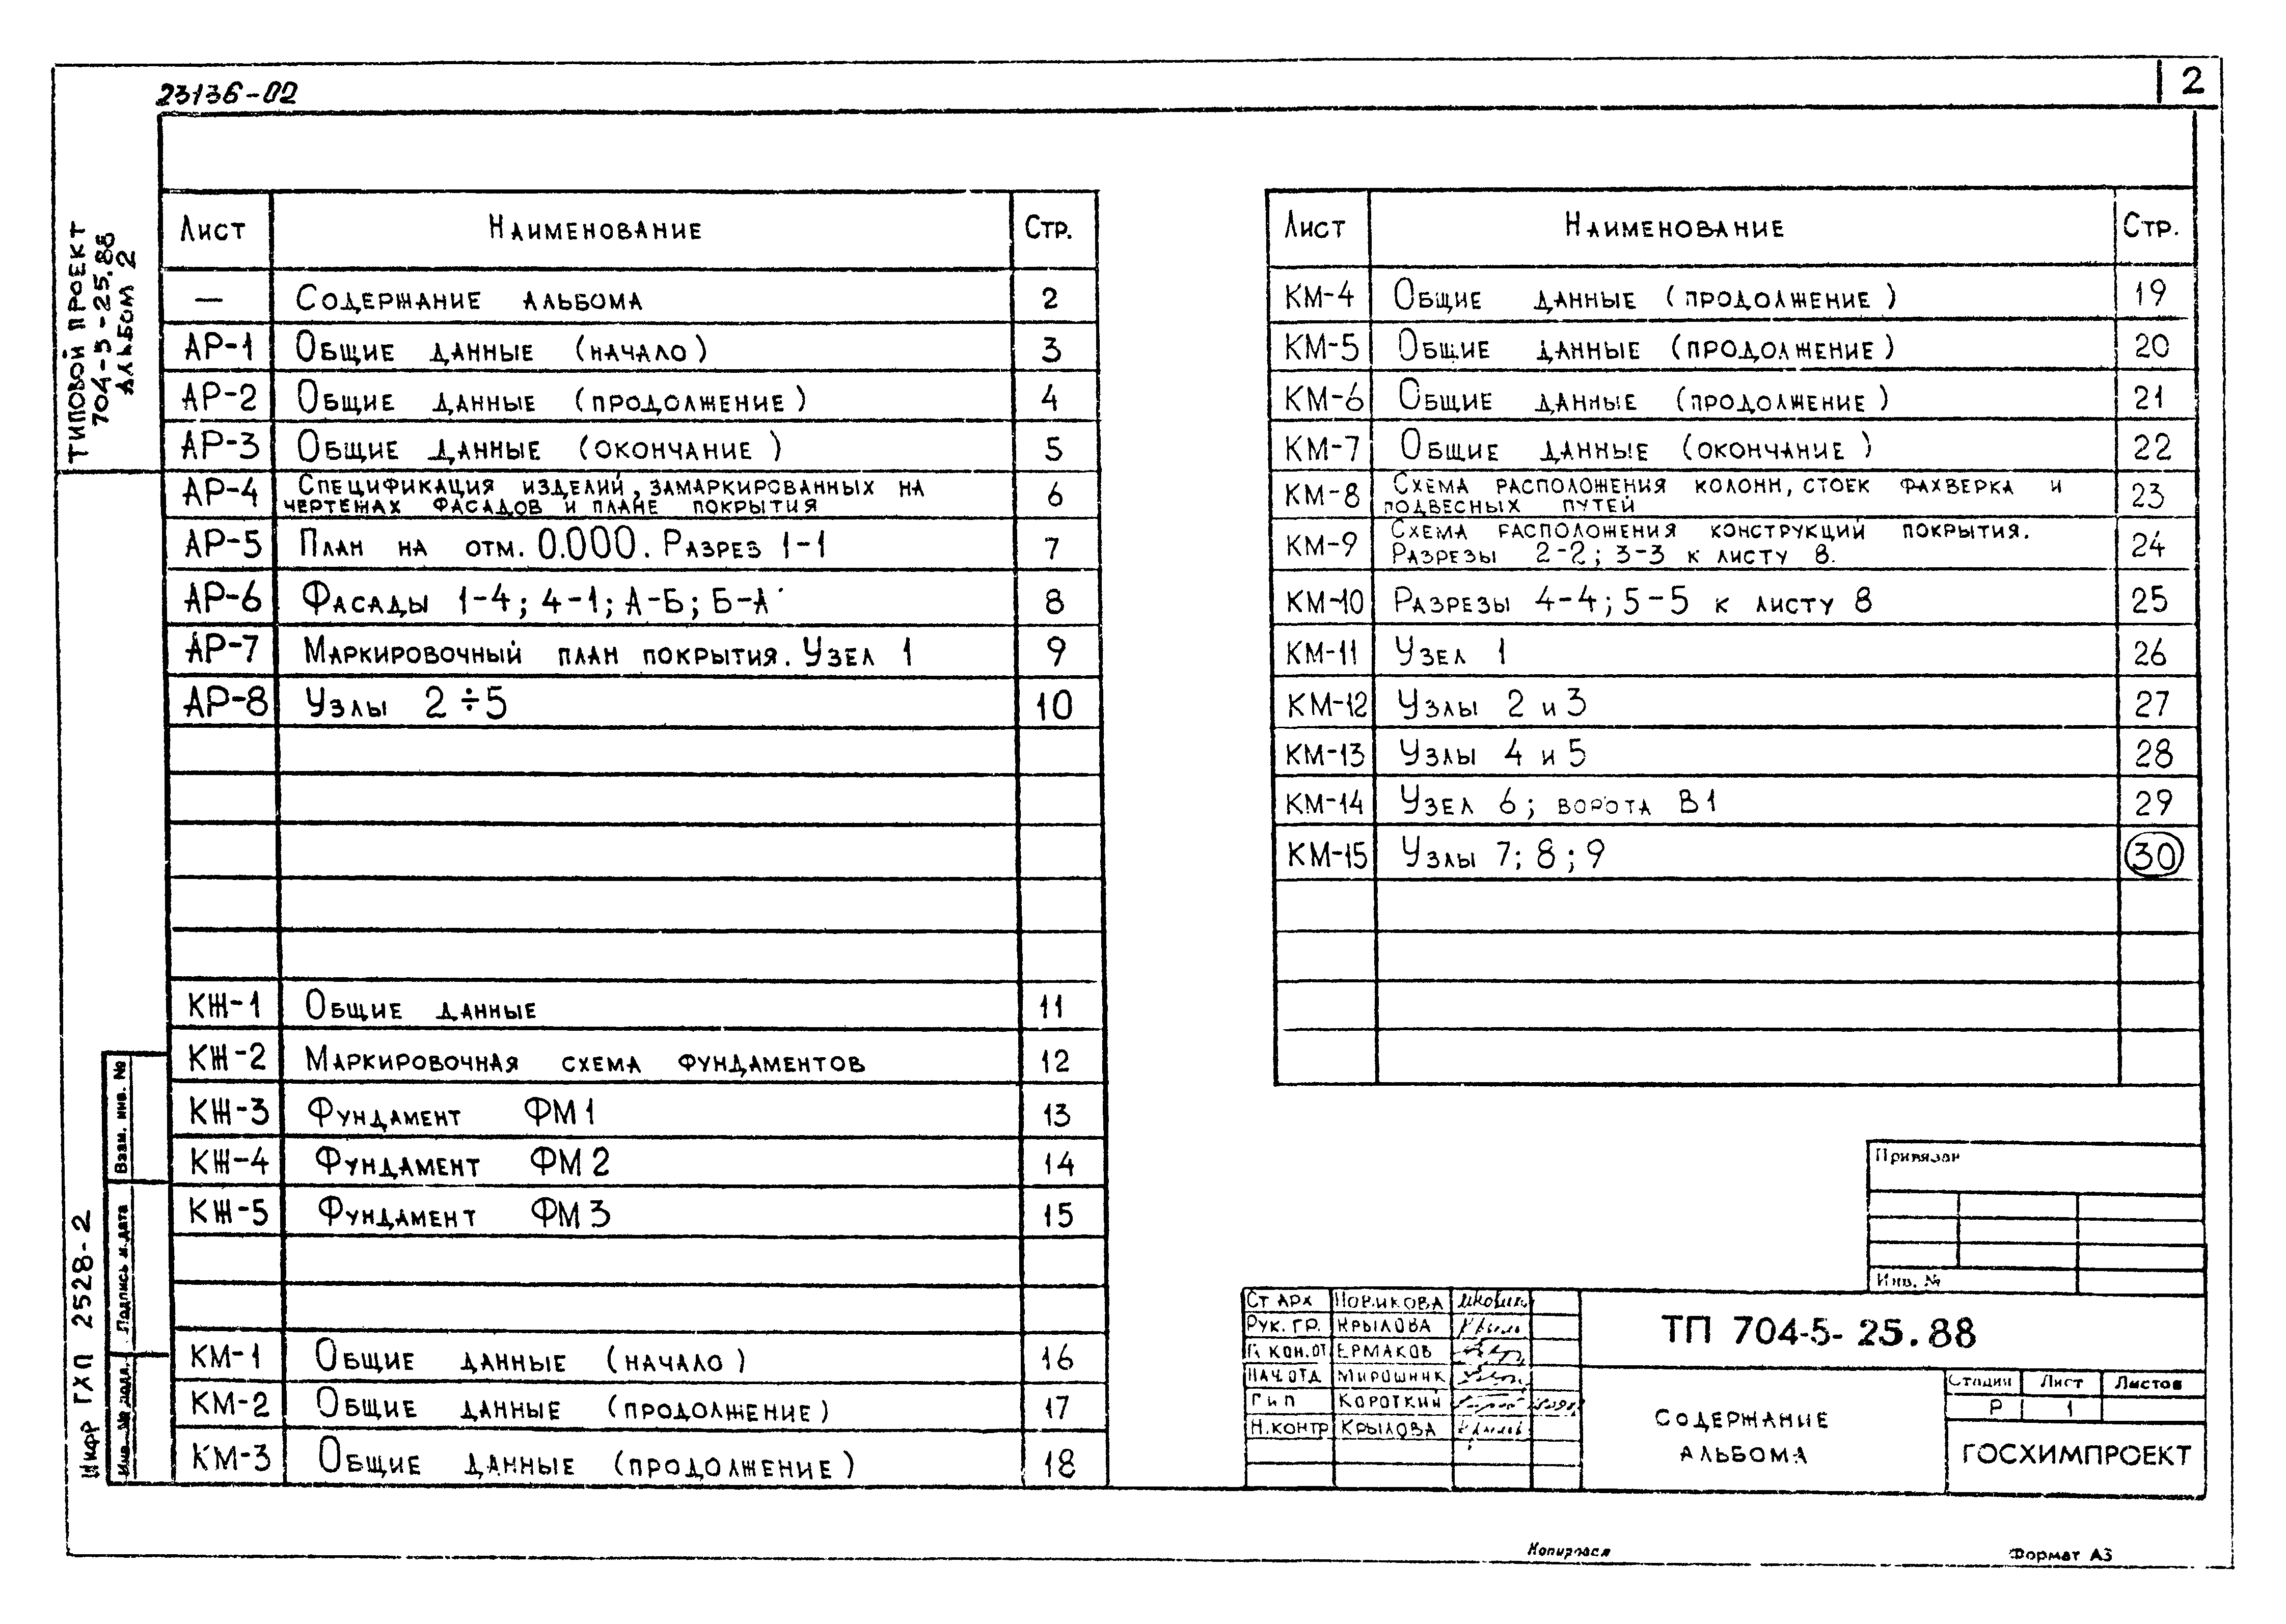 23136-02
2
ТИПОВОЙ ПРОЕКТ
704-5-25.88
АЛЬБОМ 2
Лист Наименование Стр.
— Содержание альбома 2
АР-1 Общие данные (начало) 3
АР-2 Общие данные (продолжение) 4
АР-3 Общие данные (окончание) 5
АР-4 Спецификация изделий, замаркированных на
чертежах фасадов и плане покрытия 6
АР-5 План на отм. 0.000. Разрез 1-1 7
АР-6 Фасады 1-4; 4-1; А-Б; Б-А 8
АР-7 Маркировочный план покрытия. Узел 1 9
АР-8 Узлы 2÷5 10
КЖ-1 Общие данные 11
КЖ-2 Маркировочная схема фундаментов 12
КЖ-3 Фундамент ФМ1 13
КЖ-4 Фундамент ФМ2 14
КЖ-5 Фундамент ФМ3 15
КМ-1 Общие данные (начало) 16
КМ-2 Общие данные (продолжение) 17
КМ-3 Общие данные (продолжение) 18
Лист Наименование Стр.
КМ-4 Общие данные (продолжение) 19
КМ-5 Общие данные (продолжение) 20
КМ-6 Общие данные (продолжение) 21
КМ-7 Общие данные (окончание) 22
КМ-8 Схема расположения колонн, стоек фахверка и
подвесных путей 23
КМ-9 Схема расположения конструкций покрытия.
Разрезы 2-2; 3-3 к листу 8. 24
КМ-10 Разрезы 4-4; 5-5 к листу 8 25
КМ-11 Узел 1 26
КМ-12 Узлы 2 и 3 27
КМ-13 Узлы 4 и 5 28
КМ-14 Узел 6; ворота В1 29
КМ-15 Узлы 7; 8; 9 30
Взам. инв. №
Подпись и дата
Инв. № подл.
ШИФР ГХП 2528-2
Привязан
Инв. №
Ст арх Новикова
Рук. гр. Крылова
Гл кон.от Ермаков
Нач.отд Мирошник
Гип Короткий
Н.контр Крылова
ТП 704-5-25.88
Содержание
альбома
Стадия Лист Листов
Р 1
ГОСХИМПРОЕКТ
Копировал
Формат А3